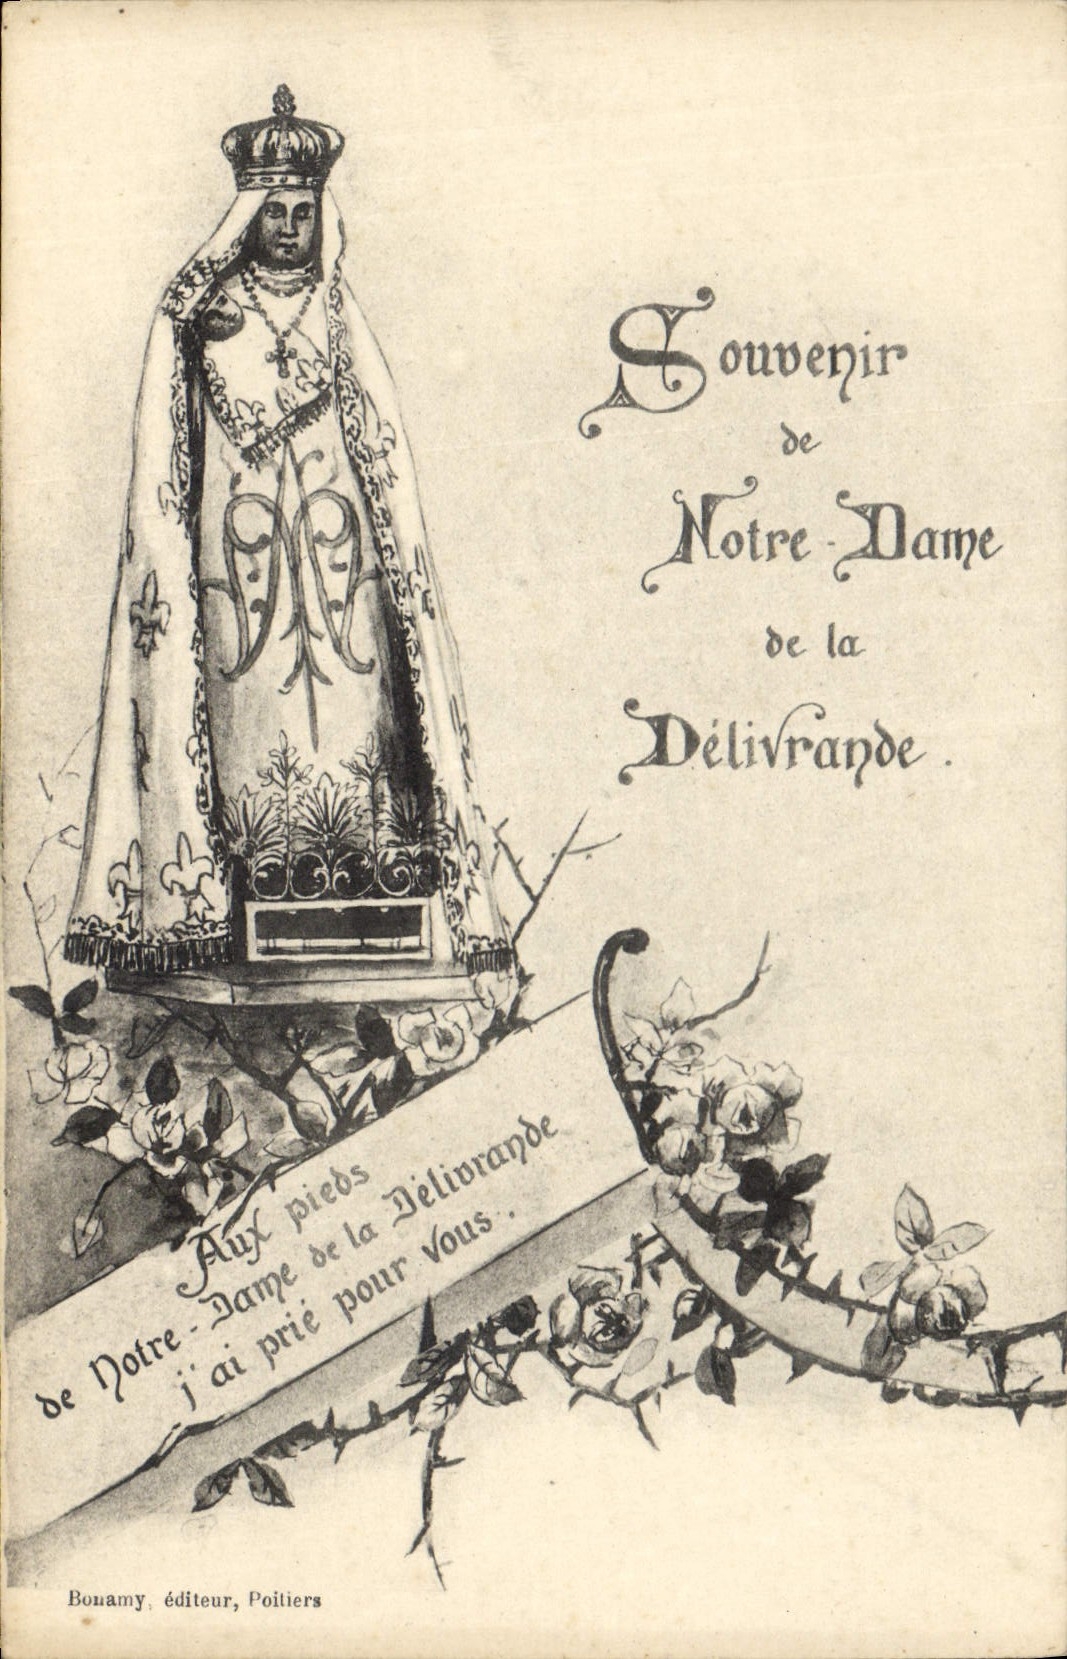 Souvenir
de
Notre-Dame
de la
Délivrande.
Aux pieds
de Notre-Dame de la Délivrande
j'ai prié pour vous.
Bonamy, éditeur, Poitiers